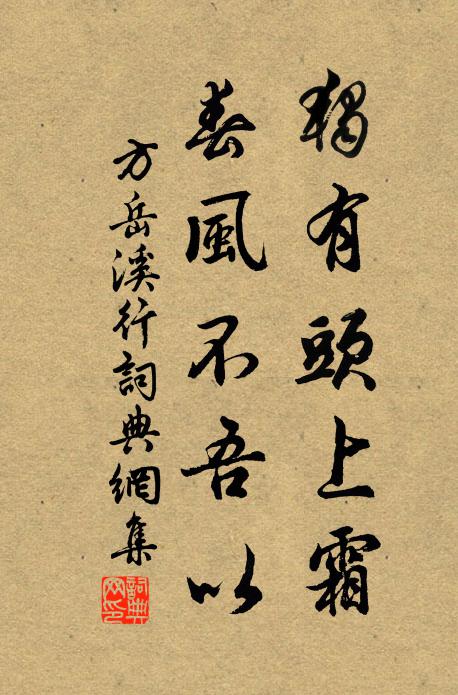 獨有頭上霜
春風不吾以
方岳溪行詞典網集
詞典網印